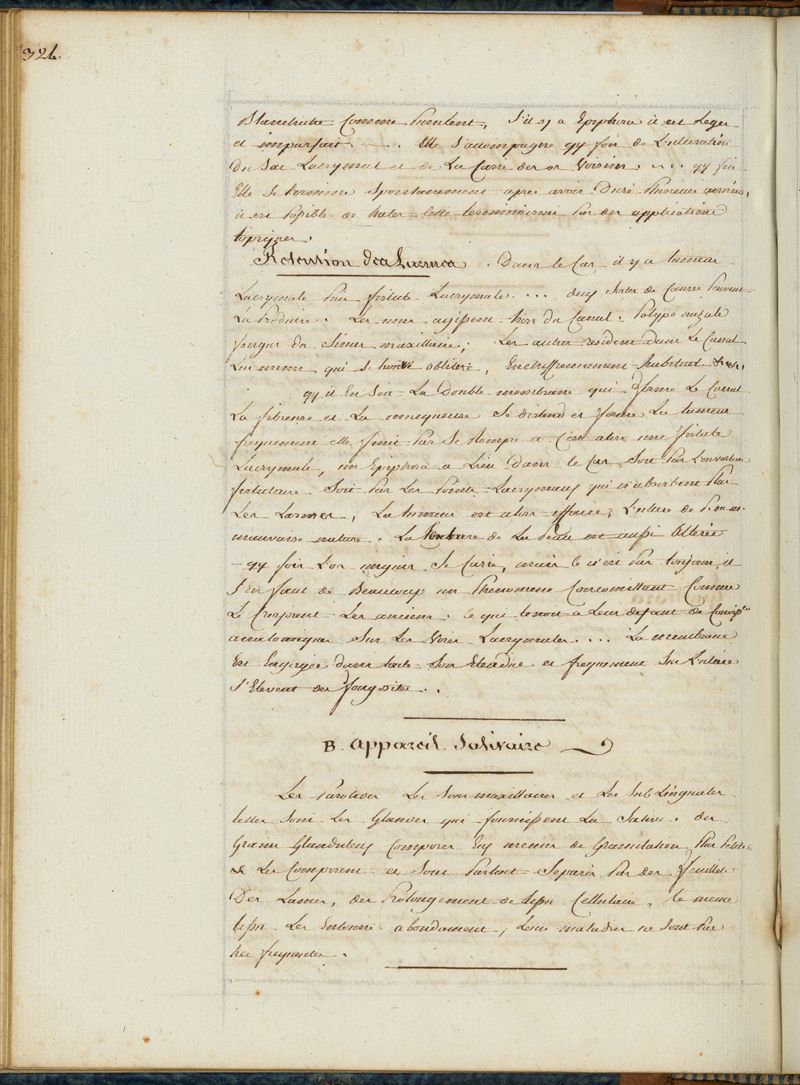 324.
Blanchatre Comme Purulent, S'il y a Epiphora il est Leger
et imparfait .... Elle S'accompagne qq fois de L'ulceration
Du Sac Lacrymal et de La Carie des os Voisins .... qq fois
Elle Se termine Spontanement apres avoir Duré Plusieurs années,
il est Possible de hater Cette terminaison Par des applications
topiques.
Retention des Larmes. Dans le Cas il y a tumeur
Lacrymale Puis fistule Lacrymale .... deux Sortes de Causes Peuvent
La Produire. Les unes agissent hors du Canal. Polype nazale
fongus du Sinus maxillaire; Les autres resident dans Le Canal
Lui meme qui Se trouve obliteré, Enchiffrenement habituel
qq il En Soit La Double membrane qui forme Le Canal
La fibreuse et La muqueuse Se distend et forme La tumeur
frequement elle finit Par Se rompre et C'est alors une fistule
Lacrymale, un Epiphora a Lieu dans le Cas Soit Par L'ouverture
fistuleuse Soit Par Les Points Lacrymaux qui n'absorbent Plus
Les Larmes, La tumeur est alors L'ulcere de
mauvaise nature. La de La Peau est aussi Alterée
qq fois L'os unguis Se Carie, mais Ce n'est Pas toujours, il
S'en faut de Beaucoup un Phenomene Concomittant Comme
Le Croyoient Les anciens. Ce qui tenoit a Leur defaut de
anatomiques Sur Les Voies Lacrymales .... La membrane
Est Engorgée dans toute Son Etendue et frequement Sur L'ulcere
S'Elevent des fongosités ..
B. Appareil Salivaire
Les Parotides Les Sous maxillaires et Les Sub Linguales
telles Sont Les Glandes qui fournissent La Salive. des
Grains Glanduleux Composés Eux memes de Granulations Plus Petites
Les Composent et Sont Partout Separés Par des feuillets
Des Lames, des Prolongements de tissu Cellulaire. Le meme
tissu Les Entourre abondament, Leurs maladies ne Sont Pas
tres frequentes.